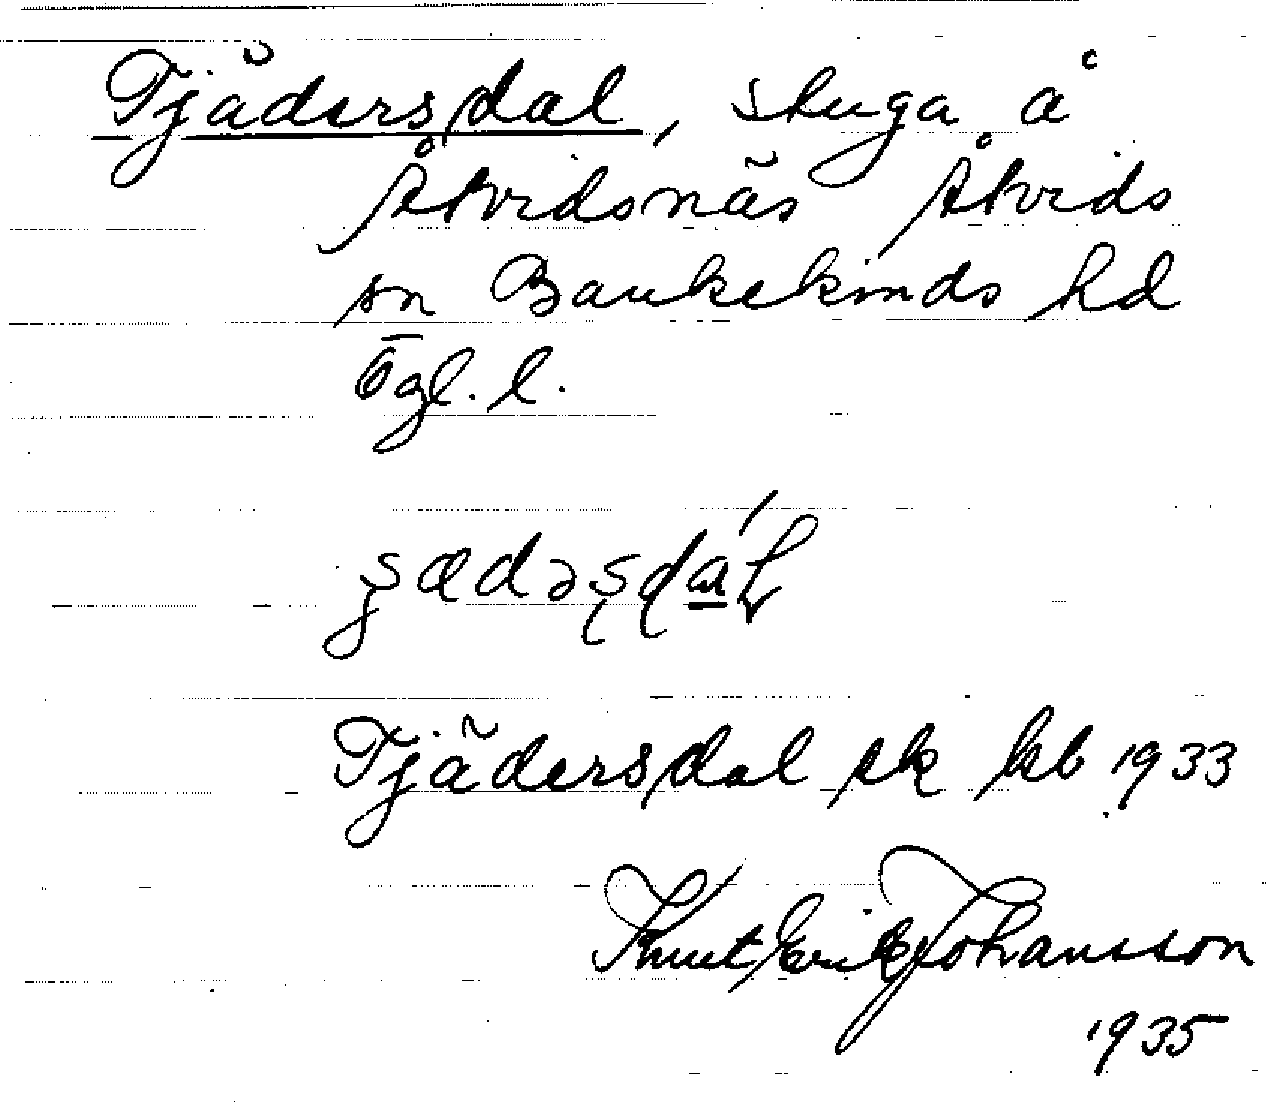 Tjädersdal, stuga å
Åtvidsnäs Åtvids
sn Bankekinds hd
Ögl. l.
Tjädersdal sk kb 1933
Knut Erik Johansson
1935